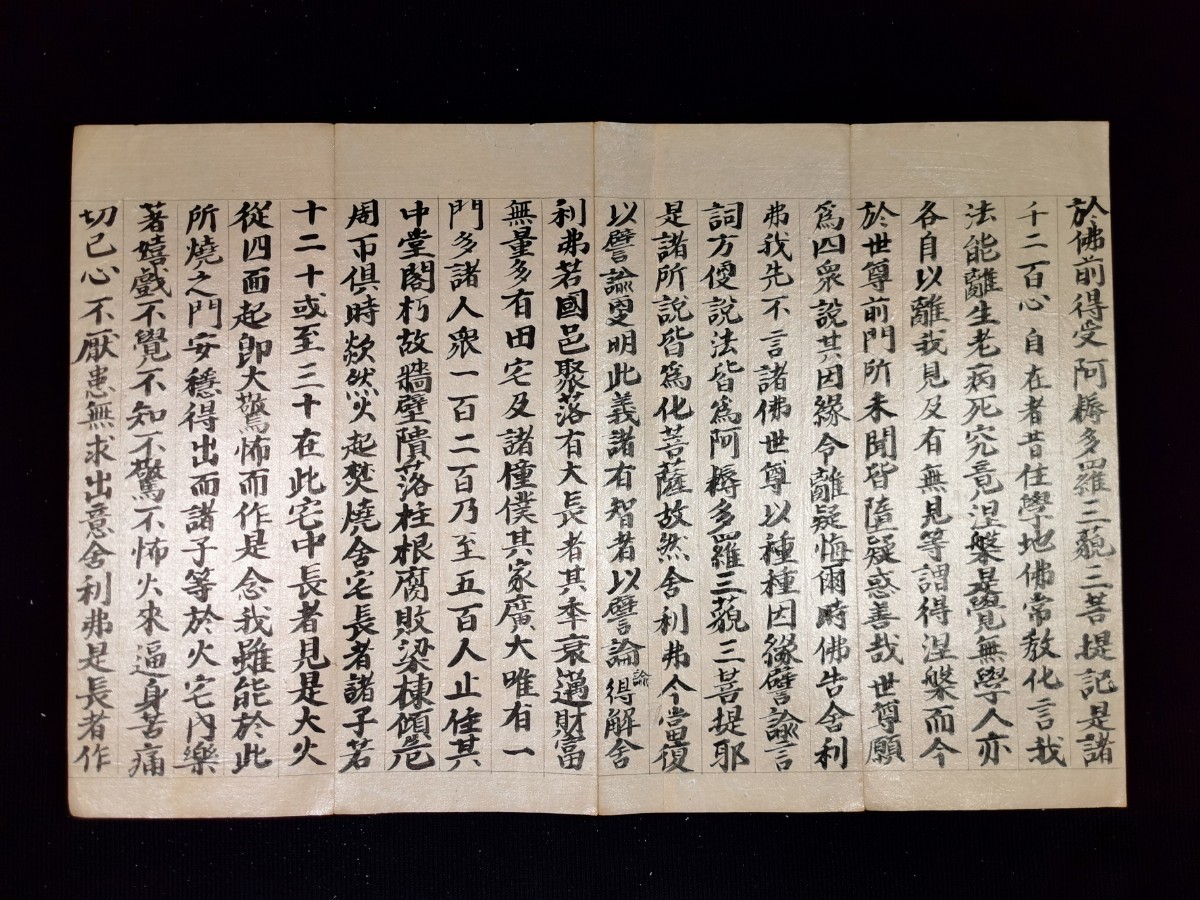 於佛前得受阿耨多羅三藐三菩提記是諸
千二百心自在者昔住學地佛常教化言我
法能離生老病死究竟涅槃是學無學人亦
各自以離我見及有無見等謂得涅槃而今
於世尊前聞所未聞皆墮疑惑善哉世尊願
為四衆說其因緣令離疑悔爾時佛告舍利
弗我先不言諸佛世尊以種種因緣譬諭言
詞方便說法皆為阿耨多羅三藐三菩提耶
是諸所說皆為化菩薩故然舍利弗今當復
以譬諭更明此義諸有智者以譬論諭得解舍
利弗若國邑聚落有大長者其年衰邁財富
無量多有田宅及諸僮僕其家廣大唯有一
門多諸人衆一百二百乃至五百人止住其
中堂閣朽故牆壁隤落柱根腐敗梁棟傾危
周帀俱時欻然火起焚燒舍宅長者諸子若
十二十或至三十在此宅中長者見是大火
從四面起即大驚怖而作是念我雖能於此
所燒之門安穩得出而諸子等於火宅內樂
著嬉戲不覺不知不驚不怖火來逼身苦痛
切己心不厭患無求出意舍利弗是長者作